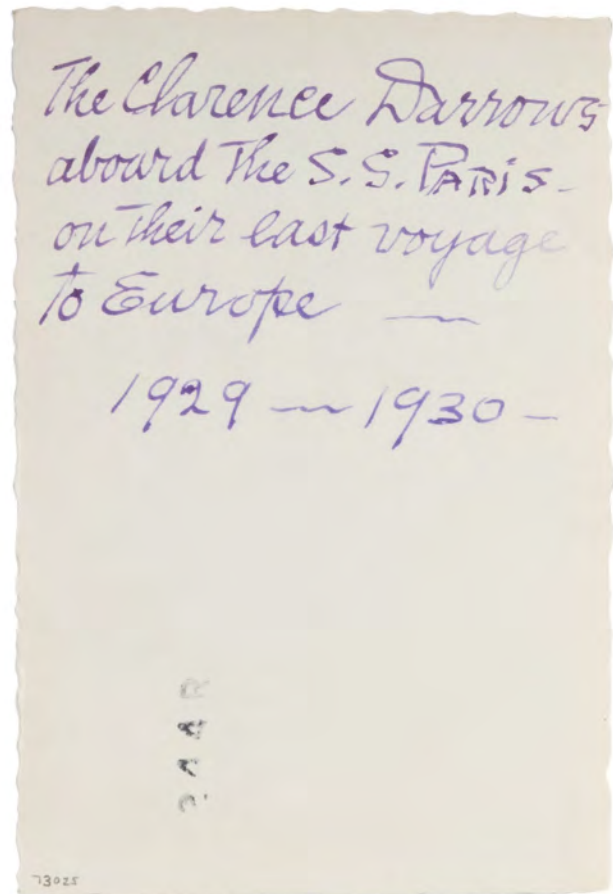 The Clarence Darrows
aboard The S.S. PARiS –
on Their last voyage
to Europe —
1929 — 1930 –
73025